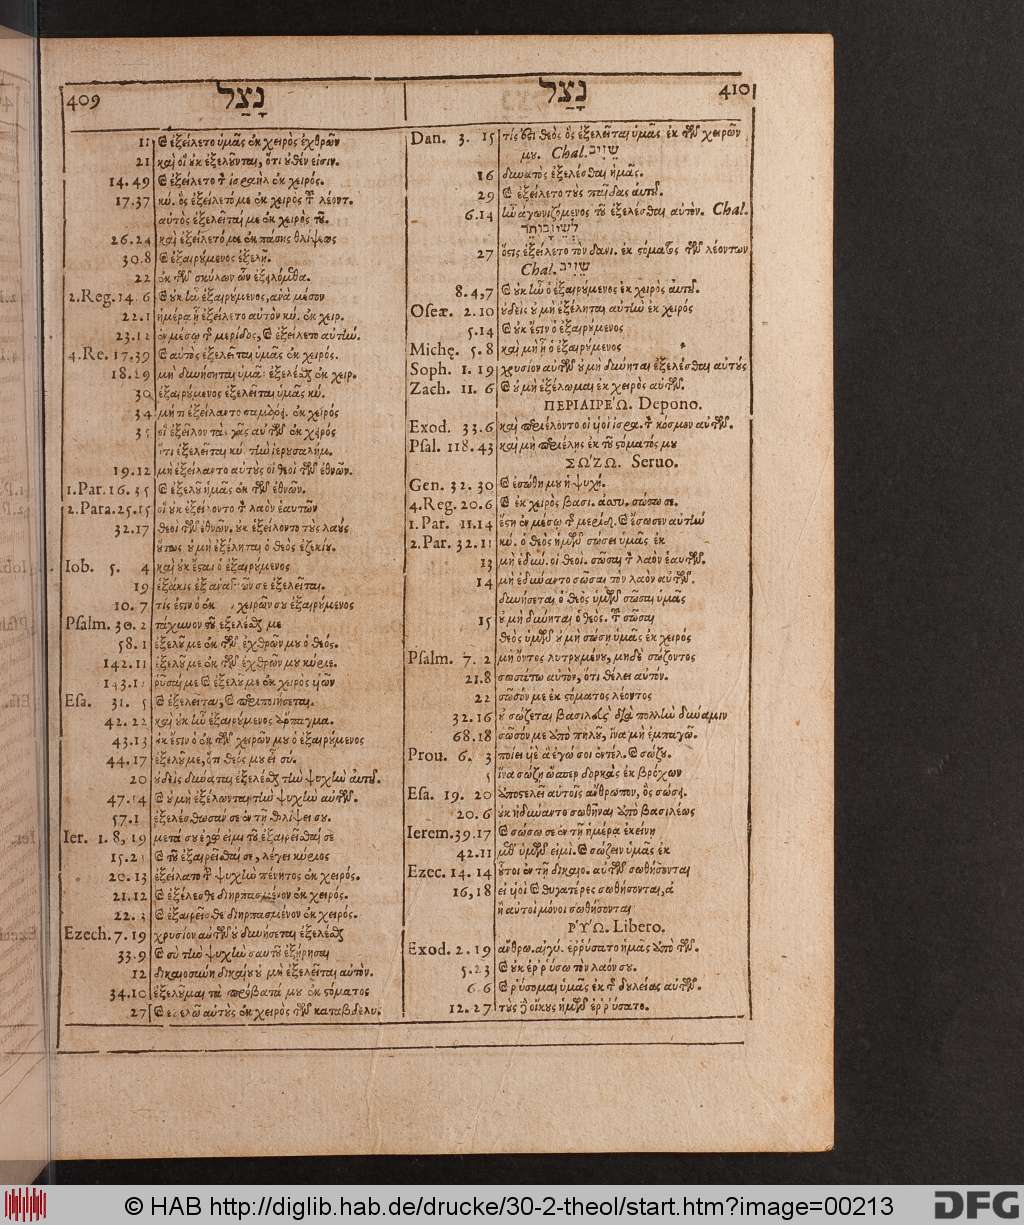 409 נָצַל
11 καὶ ἐξείλετο ὑμᾶς ἐκ χειρὸς ἐχθρῶν
21 καὶ οἳ οὐκ ἐξελοῦνται, ὅτι οὐθέν εἰσιν.
14. 49 καὶ ἐξείλετο τὸν ἰσραὴλ ἐκ χειρός.
17. 37 κύ. ὃς ἐξείλετό με ἐκ χειρὸς τοῦ λέοντ.
αὐτὸς ἐξελεῖταί με ἐκ χειρὸς τοῦ.
26. 24 καὶ ἐξείλετό με ἐκ πάσης θλίψεως
30. 8 καὶ ἐξαιρούμενος ἐξελῇ.
22 ἐκ τῶν σκύλων ὧν ἐξειλόμεθα.
2. Reg. 14 6 καὶ οὐκ ἦν ἐξαιρούμενος, ἀνὰ μέσον
22. 1 ἡμέρᾳ ᾗ ἐξείλετο αὐτὸν κύ. ἐκ χειρ.
23. 12 ἐν μέσῳ τῆς μερίδος, καὶ ἐξείλετο αὐτήν.
4. Re. 17. 39 καὶ αὐτὸς ἐξελεῖται ὑμᾶς ἐκ χειρός.
18. 29 μὴ δυνήσηται ὑμᾶς ἐξελέσθαι ἐκ χειρ.
30 ἐξαιρούμενος ἐξελεῖται ὑμᾶς κύ.
34 μή τι ἐξείλαντο σαμάρει. ἐκ χειρός
35 οἳ ἐξεῖλον τὰς γᾶς αὐτῶν ἐκ χειρός
ὅτι ἐξελεῖται κύ. τὴν ἱερουσαλήμ.
19. 12 μὴ ἐξείλαντο αὐτοὺς οἱ θεοὶ τῶν ἐθνῶν.
1. Par. 16. 35 καὶ ἐξελοῦ ἡμᾶς ἐκ τῶν ἐθνῶν.
2. Para. 25. 15 οἳ οὐκ ἐξείλοντο τὸν λαὸν ἑαυτῶν
32. 17 θεοὶ τῶν ἐθνῶν. οὐκ ἐξείλοντο τοὺς λαοὺς
οὕτως οὐ μὴ ἐξέληται ὁ θεὸς ἐζεκίου.
Iob. 5. 4 καὶ οὐκ ἔσται ὁ ἐξαιρούμενος
19 ἑξάκις ἐξ ἀναγκῶν σε ἐξελεῖται.
10. 7 τίς ἐστιν ὁ ἐκ χειρῶν σου ἐξαιρούμενος
Psalm. 30. 2 τάχυνον τοῦ ἐξελέσθαι με
58. 1 ἐξελοῦ με ἐκ τῶν ἐχθρῶν μου ὁ θεός.
142. 11 ἐξελοῦ με ἐκ τῶν ἐχθρῶν μου κύριε.
143. 1 ῥῦσαί με καὶ ἐξελοῦ με ἐκ χειρὸς υἱῶν
Esa. 31. 5 ἐξελεῖται, καὶ περιποιήσεται.
42. 22 καὶ οὐκ ἦν ἐξαιρούμενος ἅρπαγμα.
43. 13 οὐκ ἔστιν ὁ ἐκ τῶν χειρῶν μου ὁ ἐξαιρούμενος
44. 17 ἐξελοῦ με, ὅτι θεός μου εἶ σύ.
20 οὐδεὶς δύναται ἐξελέσθαι τὴν ψυχὴν αὐτοῦ.
47. 14 καὶ οὐ μὴ ἐξέλωνται τὴν ψυχὴν αὐτῶν.
57. 1 ἐξελέσθωσάν σε ἐν τῇ θλίψει σου.
Ier. 1. 8, 19 μετὰ σοῦ ἐγώ εἰμι τοῦ ἐξαιρεῖσθαί σε
15. 2 καὶ τοῦ ἐξαιρεῖσθαί σε, λέγει κύριος
20. 13 ἐξείλατο τὴν ψυχὴν πένητος ἐκ χειρός.
21. 12 καὶ ἐξέλεσθε διηρπασμένον ἐκ χειρός.
22. 3 καὶ ἐξαιρεῖσθε διηρπασμένον ἐκ χειρός.
Ezech. 7. 19 χρυσίον αὐτῶν οὐ δυνήσεται ἐξελέσθαι
33. 9 καὶ σὺ τὴν ψυχὴν σαυτοῦ ἐξῄρησαι
12 δικαιοσύνη δικαίου οὐ μὴ ἐξελεῖται αὐτόν.
34. 10 ἐξελοῦμαι τὰ πρόβατά μου ἐκ στόματος
27 καὶ ἐξελῶ αὐτοὺς ἐκ χειρὸς τῶν καταβδελυ.
נָצַל 410
Dan. 3. 15 τίς ἐστι θεὸς ὃς ἐξελεῖται ὑμᾶς ἐκ τῶν χειρῶν
μου. Chal. שֵׁזִיב
16 δυνατὸς ἐξελέσθαι ἡμᾶς.
29 καὶ ἐξείλετο τοὺς παῖδας αὐτοῦ.
6. 14 ἦν ἀγωνιζόμενος τοῦ ἐξελέσθαι αὐτόν. Chal.
לְשֵׁיזָבוּתֵהּ
27 ὅστις ἐξείλετο τὸν δανι. ἐκ στόματος τῶν λεόντων
Chal. שֵׁיזִב
8. 4, 7 καὶ οὐκ ἦν ὁ ἐξαιρούμενος ἐκ χειρὸς αὐτοῦ.
Oseæ. 2. 10 οὐδεὶς οὐ μὴ ἐξέληται αὐτὴν ἐκ χειρός
5. 14 καὶ οὐκ ἔστιν ὁ ἐξαιρούμενος
Michę. 5. 8 καὶ μὴ ᾖ ὁ ἐξαιρούμενος
Soph. 1. 19 χρυσίον αὐτῶν οὐ μὴ δύνηται ἐξελέσθαι αὐτούς
Zach. 11. 6 καὶ οὐ μὴ ἐξέλωμαι ἐκ χειρὸς αὐτῶν.
ΠΕΡΙΑΙΡΕΏ. Depono.
Exod. 33. 6 καὶ περιείλοντο οἱ υἱοὶ ἰσρα. τὸν κόσμον αὐτῶν.
Psal. 118. 43 καὶ μὴ περιέλῃς ἐκ τοῦ στόματός μου
ΣΩ'ΖΩ. Seruo.
Gen. 32. 30 καὶ ἐσώθη μου ἡ ψυχή.
4. Reg. 20. 6 καὶ ἐκ χειρὸς βασι. ἀσσυ. σώσω σε.
1. Par. 11. 14 ἔστη ἐν μέσῳ τῆς μερίδ. καὶ ἔσωσεν αὐτήν
2. Par. 32. 11 κύ. ὁ θεὸς ἡμῶν σώσει ὑμᾶς ἐκ
13 μὴ ἐδύν. οἱ θεοὶ. σῶσαι τὸν λαὸν ἑαυτῶν.
14 μὴ ἐδύναντο σῶσαι τὸν λαὸν αὐτῶν.
δυνήσεται ὁ θεὸς ὑμῶν σῶσαι ὑμᾶς
15 οὐ μὴ δύνηται ὁ θεὸς. τοῦ σῶσαι
θεὸς ὑμῶν οὐ μὴ σώσῃ ὑμᾶς ἐκ χειρός
Psalm. 7. 2 μὴ ὄντος λυτρουμένου, μηδὲ σώζοντος
21. 8 σωσάτω αὐτὸν, ὅτι θέλει αὐτόν.
22 σῶσόν με ἐκ στόματος λέοντος
32. 16 οὐ σώζεται βασιλεὺς διὰ πολλὴν δύναμιν
68. 18 σῶσόν με ἀπὸ πηλοῦ, ἵνα μὴ ἐμπαγῶ.
Prou. 6. 3 ποίει υἱὲ ἃ ἐγώ σοι ἐντέλ. καὶ σώζου.
5 ἵνα σώζῃ ὥσπερ δορκὰς ἐκ βρόχων
Esa. 19. 20 ἀποστελεῖ αὐτοῖς ἄνθρωπον, ὃς σώσει.
20. 6 οὐκ ἠδύναντο σωθῆναι ἀπὸ βασιλέως
Ierem. 39. 17 καὶ σώσω σε ἐν τῇ ἡμέρᾳ ἐκείνῃ
42. 11 μεθ' ὑμῶν εἰμὶ. καὶ σώζειν ὑμᾶς ἐκ
Ezec. 14. 14 οὗτοι ἐν τῇ δικαιο. αὐτῶν σωθήσονται
16, 18 εἰ υἱοὶ καὶ θυγατέρες σωθήσονται, ἀ
ἢ αὐτοὶ μόνοι σωθήσονται
ῬΎΩ. Libero.
Exod. 2. 19 ἄνθρω. αἰγύ. ἐῤῥύσατο ἡμᾶς ἀπὸ τῶν.
5. 23 καὶ οὐκ ἐῤῥύσω τὸν λαόν σου.
6. 6 καὶ ῥύσομαι ὑμᾶς ἐκ τῆς δουλείας αὐτῶν.
12. 27 τοὺς δὲ οἴκους ἡμῶν ἐῤῥύσατο.
© HAB http://diglib.hab.de/drucke/30-2-theol/start.htm?image=00213
DFG